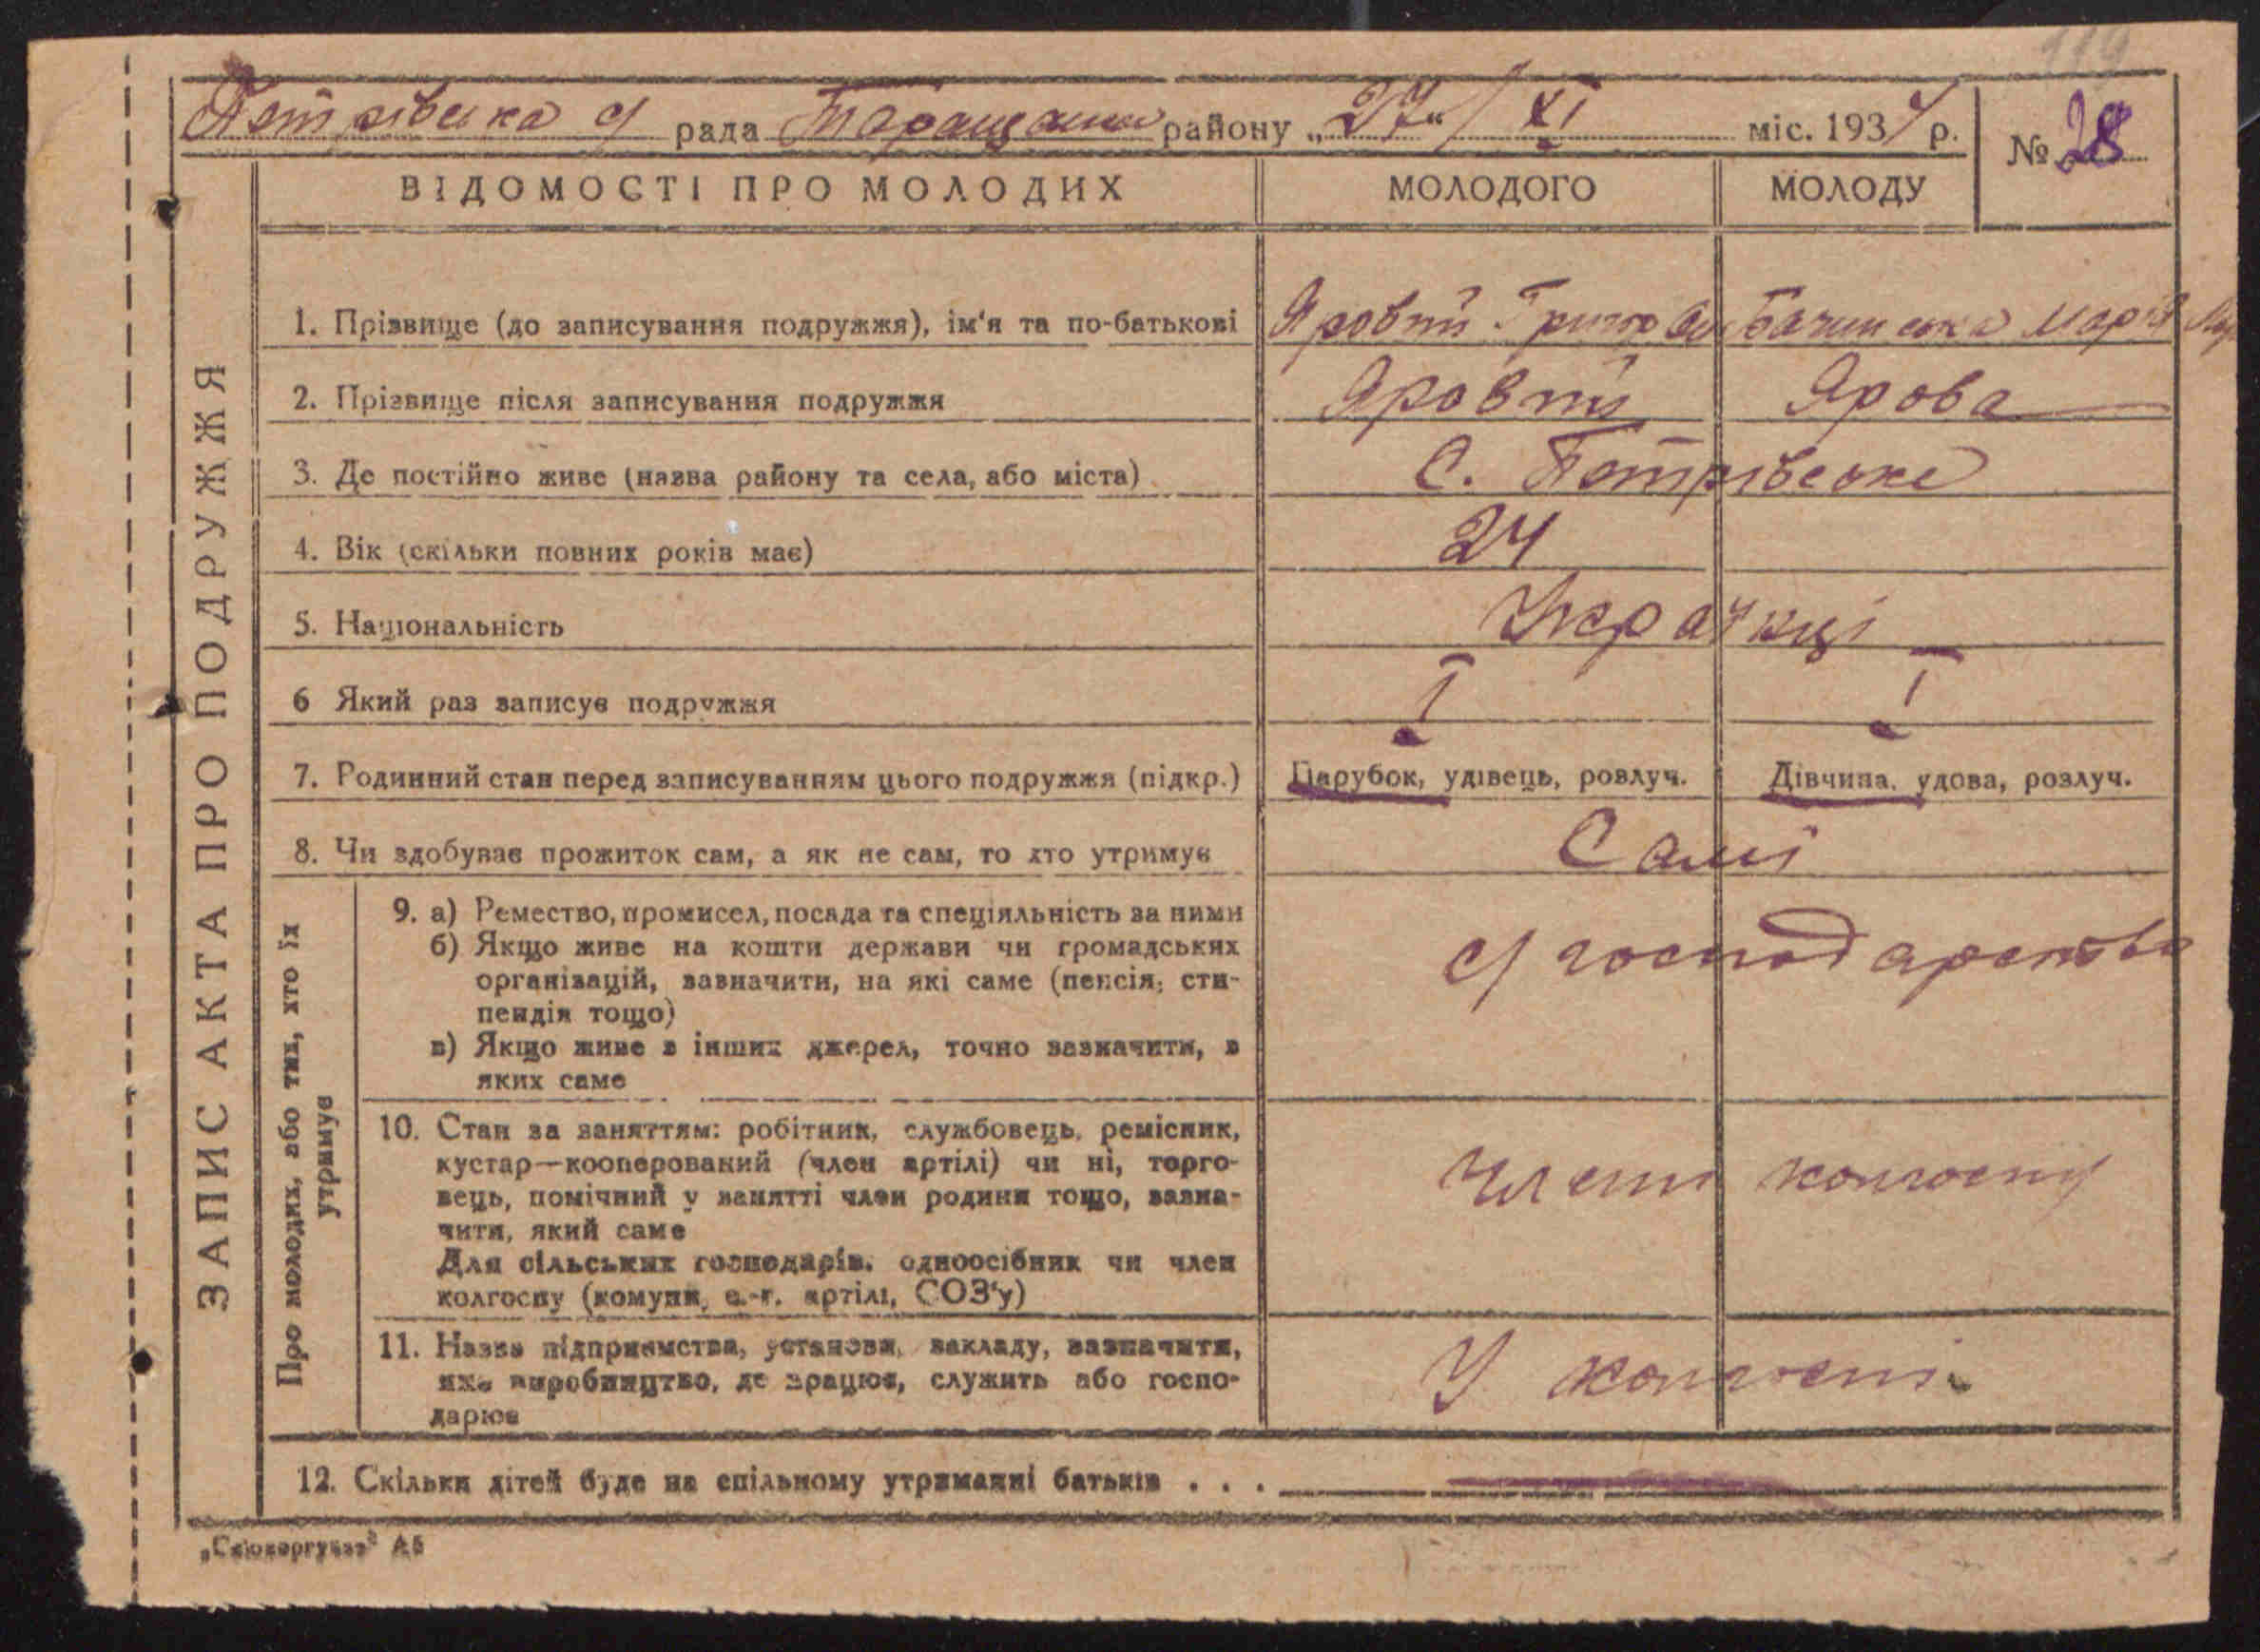 119
Петрівська с/ рада Таращанськ району „27“ / XI міс. 1934 р. № 28
ВІДОМОСТІ ПРО МОЛОДИХ МОЛОДОГО МОЛОДУ
ЗАПИС АКТА ПРО ПОДРУЖЖЯ
1. Прізвище (до записування подружжя), ім'я та по-батькові Яровий Григор Бачинська Марія
2. Прізвище після записування подружжя Яровий Ярова
3. Де постійно живе (назва району та села, або міста) С. Петрівське
4. Вік (скільки повних років має) 24
5. Національність Українці
6 Який раз записує подружжя I I
7. Родинний стан перед записуванням цього подружжя (підкр.) Парубок, удівець, розлуч. Дівчина, удова, розлуч.
8. Чи здобуває прожиток сам, а як не сам, то хто утримує Самі
Про молодих, або тих, хто їх
утримує
9. а) Ремество, промисел, посада та спеціяльність за ними
б) Якщо живе на кошти держави чи громадських
організацій, зазначити, на які саме (пенсія, сти-
пендія тощо)
в) Якщо живе з інших джерел, точно зазначити, з
яких саме
с/ господарство
10. Стан за заняттям: робітник, службовець, ремісник,
кустар—кооперований (член артілі) чи ні, торго-
вець, помічний у занятті член родини тощо, зазна-
чити, який саме
Для сільських господарів, одноосібник чи член
колгоспу (комуни, с.-г. артілі, СОЗ'у)
Члени колгоспу
11. Назва підприємства, установи, закладу, зазначити,
яке виробництво, де працює, служить або госпо-
дарює
У колгоспі
12. Скільки дітей буде на спільному утриманні батьків . . .